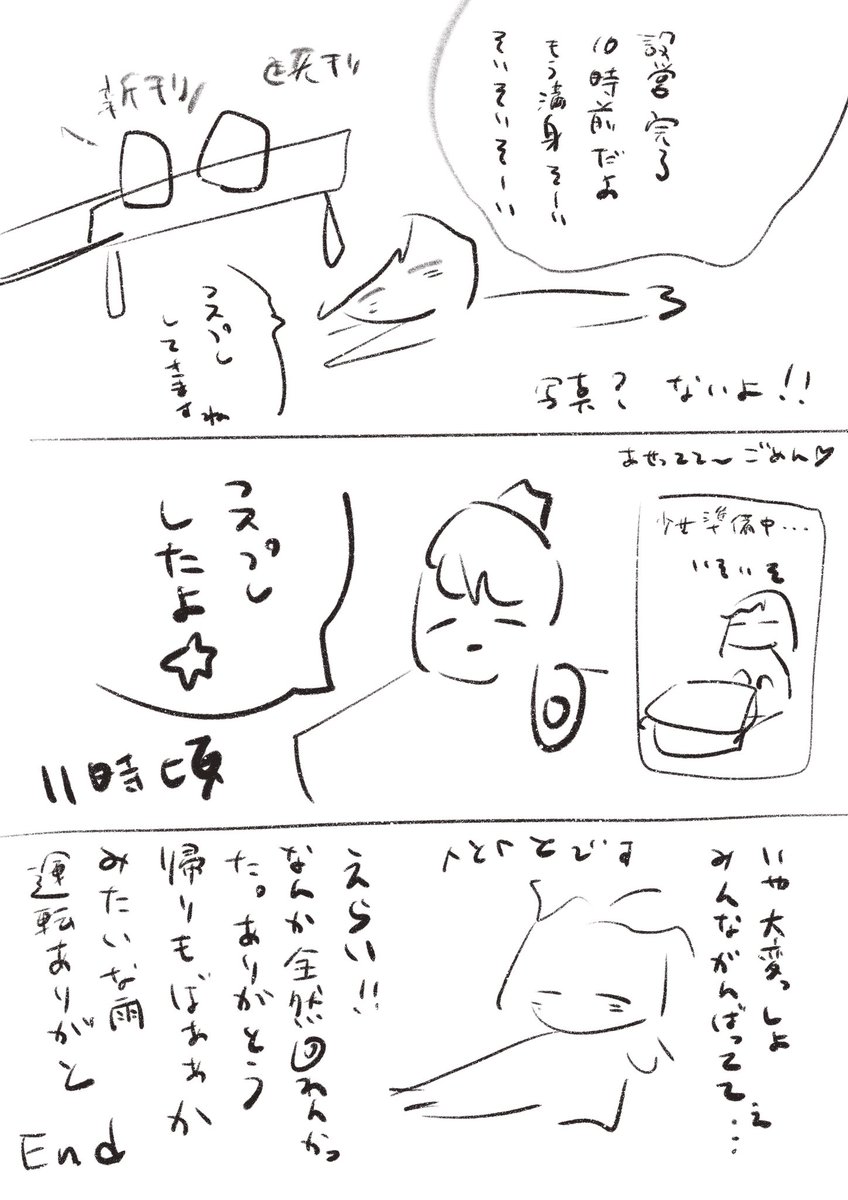 設営完了
10時前だよ
もう満身そーい
そいそいそーい
既刊
新刊
コスプレ
してきますね
写真? ないよ!!
あせってて〜ごめん♡
少女準備中・・・
いそいそ
コスプレ
したよ☆
11時頃
いや大変っしょ
みんながんばってて…え
えらい!!
なんか全然回れんかっ
た。ありがとう
帰りもばぁぁか
みたいな雨
運転ありがと
End